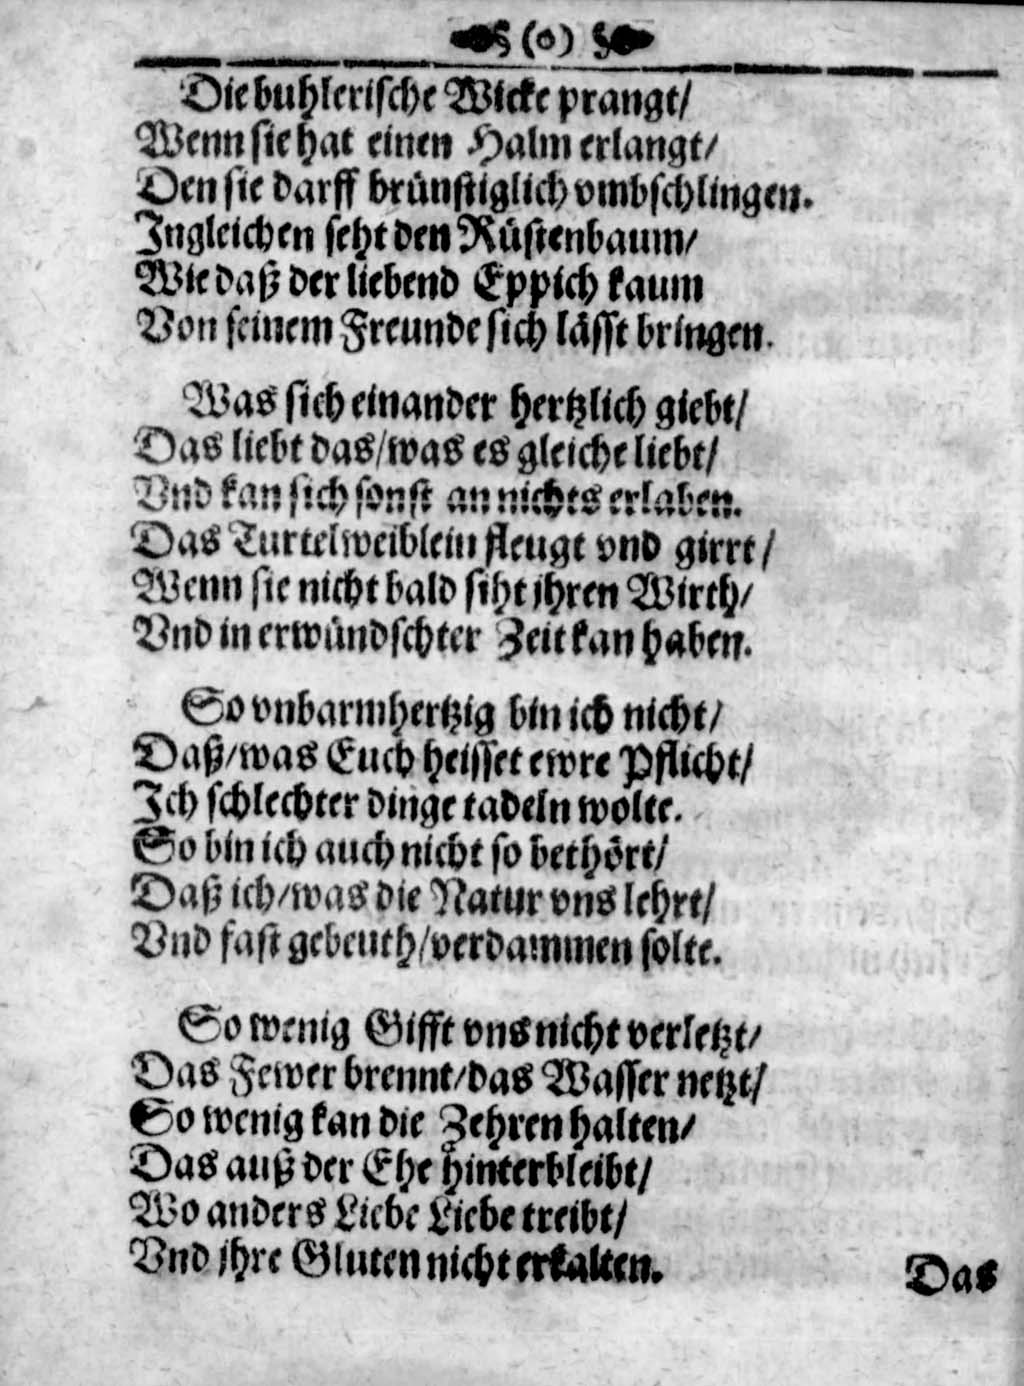 (0)
Die buhlerische Wicke prangt/
Wenn sie hat einen Halm erlangt/
Den sie darff brünstiglich vmbschlingen.
Ingleichen seht den Rüstenbaum/
Wie daß der liebend Eppich kaum
Von seinem Freunde sich lässt bringen.
Was sich einander hertzlich giebt/
Das liebt das/was es gleiche liebt/
Vnd kan sich sonst an nichts erlaben.
Das Turtelweiblein fleugt vnd girrt/
Wenn sie nicht bald siht jhren Wirth/
Vnd in erwündschter Zeit kan haben.
So vnbarmhertzig bin ich nicht/
Daß/was Euch heisset ewre Pflicht/
Ich schlechter dinge tadeln wolte.
So bin ich auch nicht so bethört/
Daß ich/was die Natur vns lehrt/
Vnd fast gebeuth/verdammen solte.
So wenig Gifft vns nicht verletzt/
Das Fewer brennt/das Wasser netzt/
So wenig kan die Zehren halten/
Das auß der Ehe hinterbleibt/
Wo anders Liebe Liebe treibt/
Vnd jhre Gluten nicht erkalten.
Das